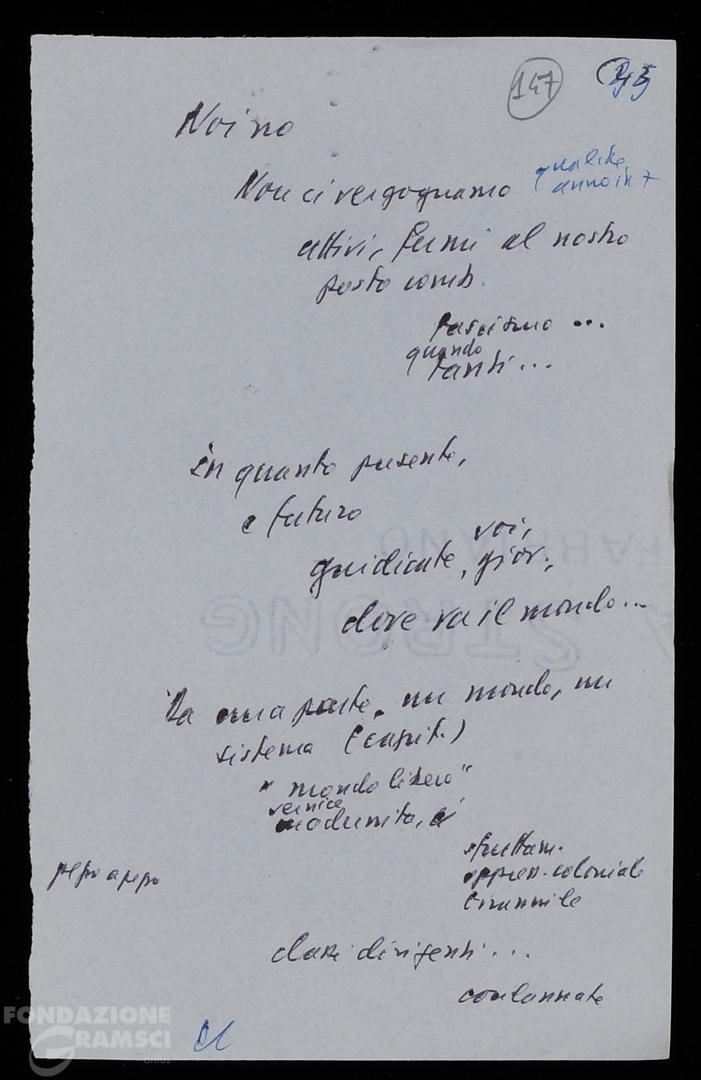 147
Noi no
Non ci vergogniamo
qualche
anno in +
attivi, fermi al nostro
posto comb.
fascismo ...
quando
tanti ...
In quanto presente,
e futuro
voi,
giudicate, giov.,
dove va il mondo...
Da una parte, un mondo, un
sistema (capit.)
"mondo libero"
vernice
modernità, è
sfruttam.
oppress. coloniale
pezzo a pezzo
classi dirigenti ...
condannate
FABRIANO
STRONG
FONDAZIONE
GRAMSCI
onlus